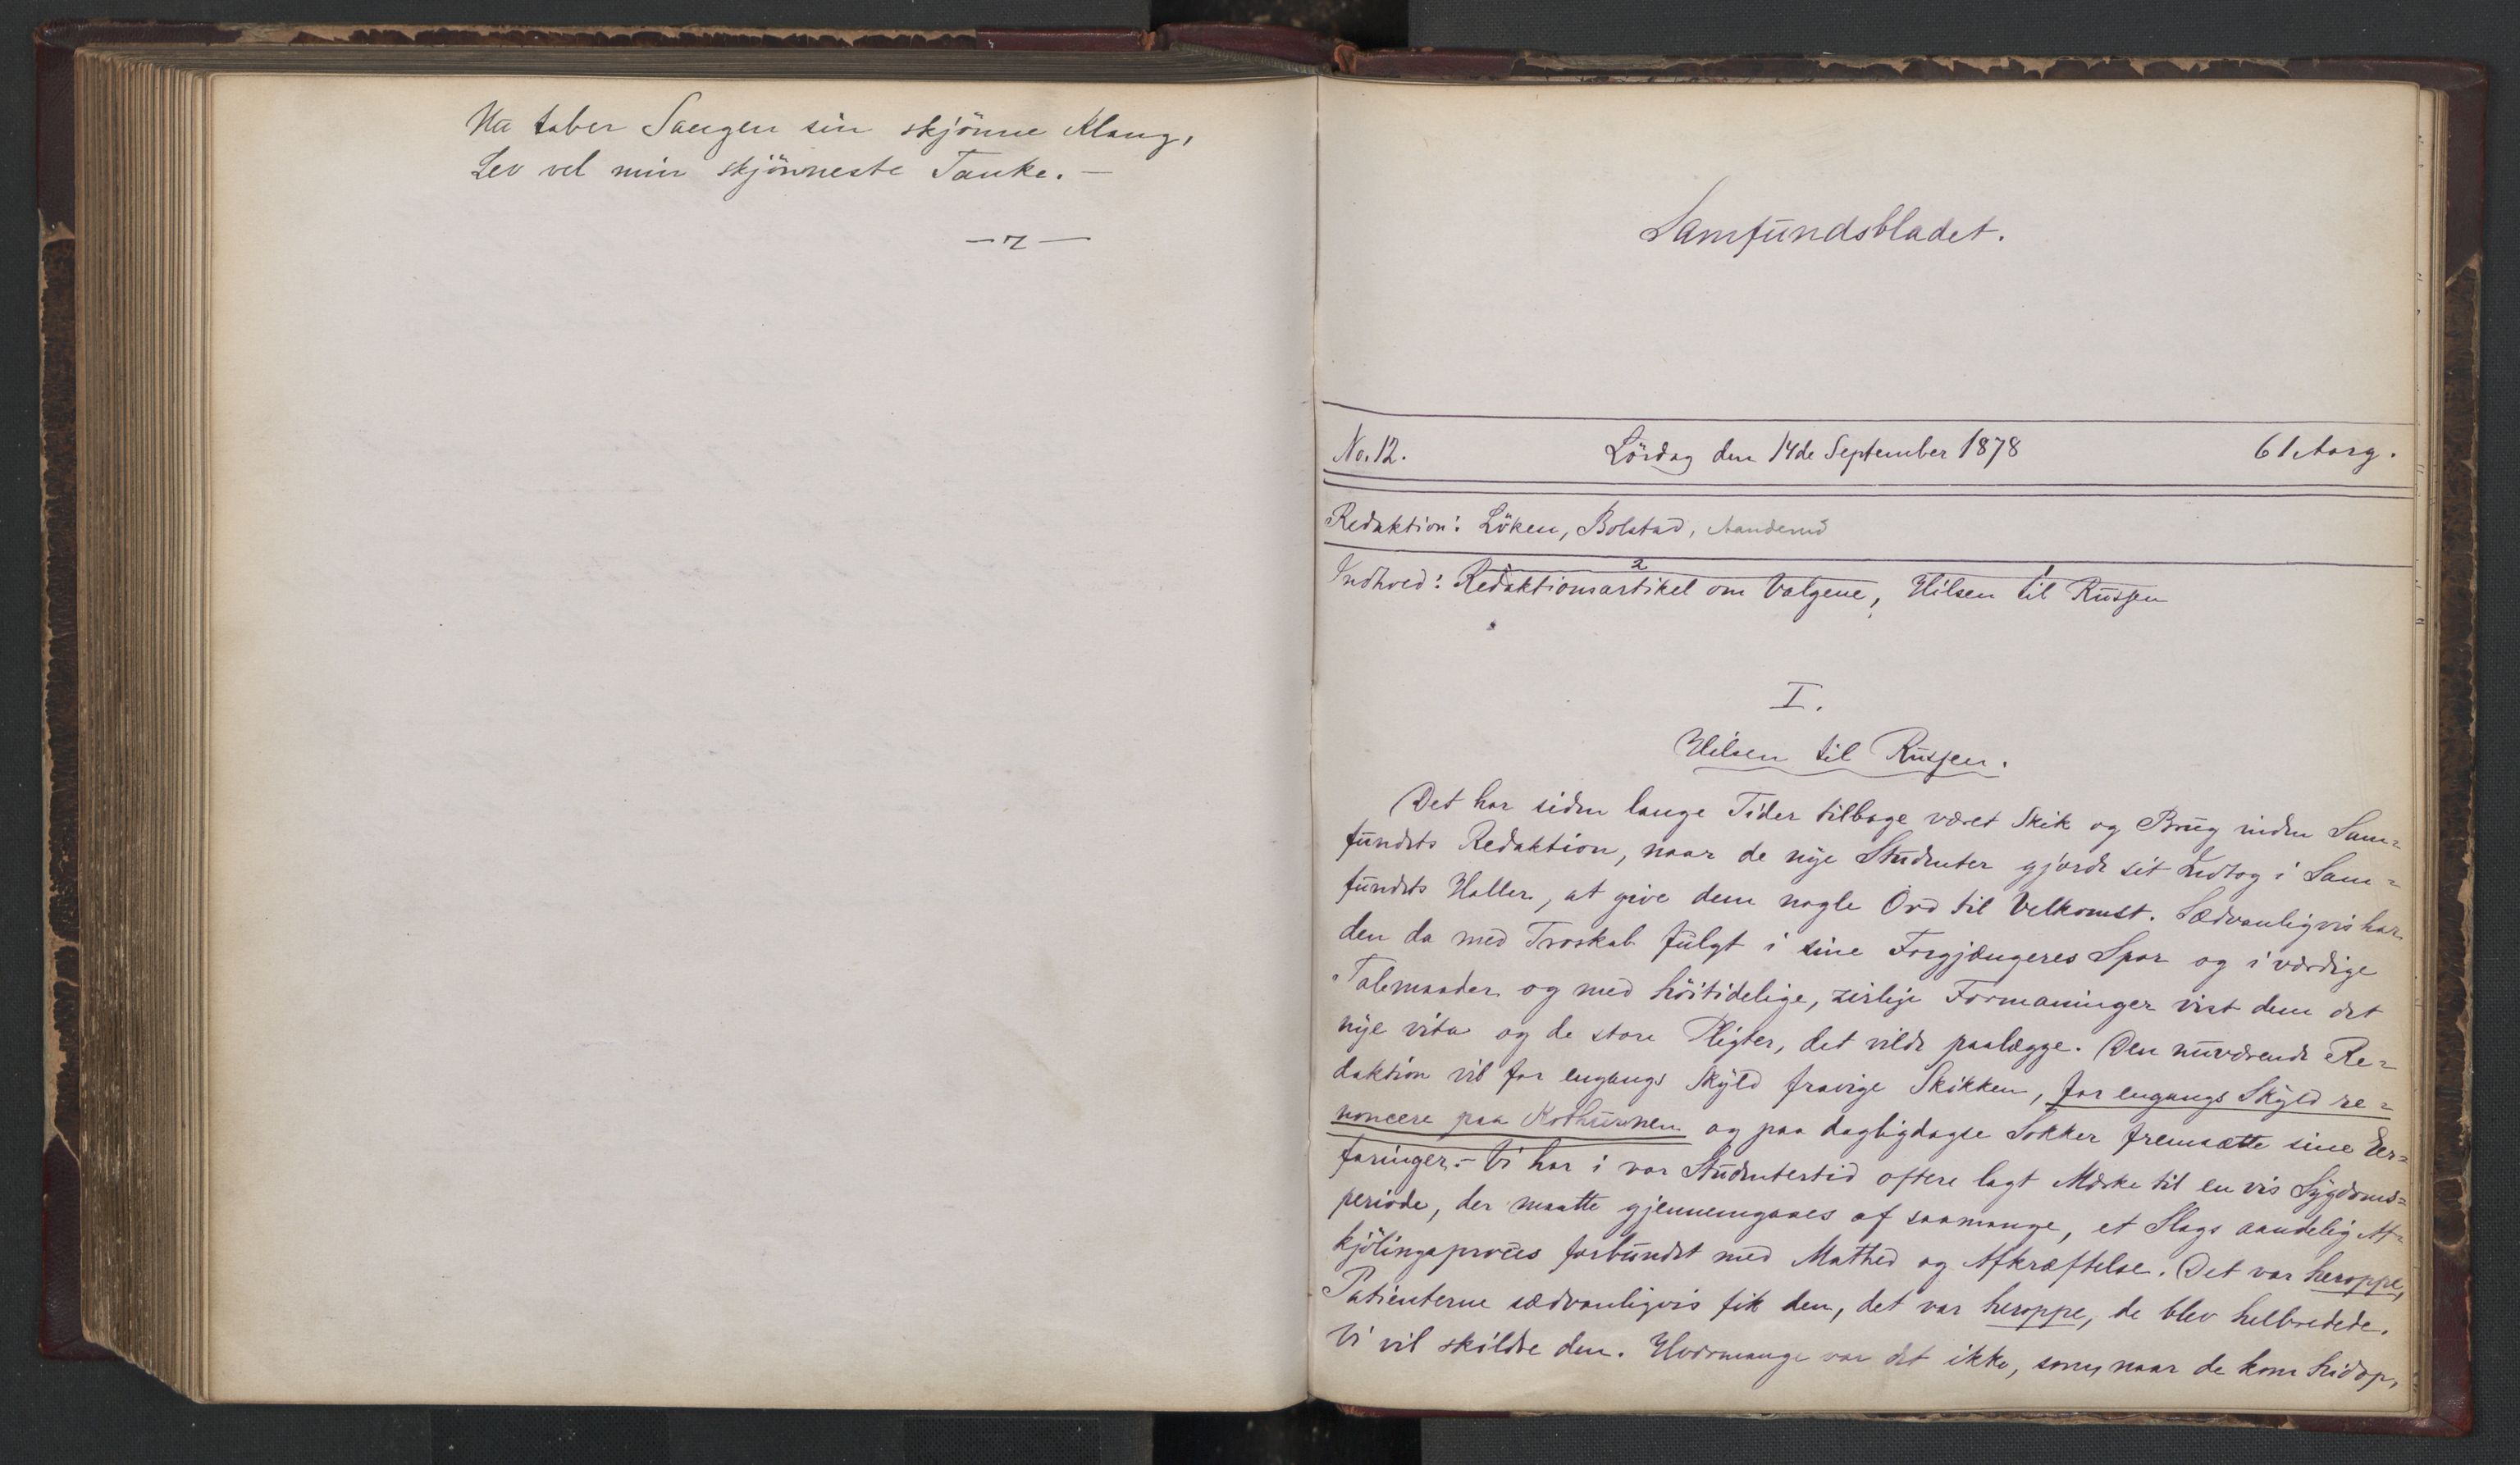 Nu taber Sangen sin skjönne Klang,
Lev vel min skjönneste Tanke. —
— z —
Samfundsbladet.
No. 12. Lördag den 14de September 1878 61 Aarg.
Redaktion: Löken, Bolstad, Aanderud
2 1
Indhold: Redaktionsartikel om Valgene, Hilsen til Russen
I.
Hilsen til Russen.
Det har siden lange Tider tilbage været Skik og Brug inden Sam=
fundets Redaktion, naar de nye Studenter gjorde sit Indtog i Sam=
fundets Haller, at give dem nogle Ord til Velkomst. Sædvanligvis har
den da med Troskab fulgt i sine Forgjængeres Spor og i værdige
Talemaader og med höitidelige, zirlige Formaninger vist dem det
nye vita og de store Pligter, det vilde paalægge. Den nuværende Re=
daktion vil for engangs Skyld fravige Skikken, for engangs Skyld re=
noncere paa Kothurnen og paa dagligdagse Sokker fremsætte sine Er=
faringer. — Vi har i vor Studentertid oftere lagt Mærke til en vis Sygdoms=
periode, der maatte gjennemgaaes af saamange, et Slags aandelig Af=
kjölingsproces forbundet med Mathed og Afkræftelse. Det var heroppe,
Patienterne sædvanligvis fik den, det var heroppe, de blev helbredede.
Vi vil skildre den. Hvormange var det ikke, som, naar de kom hidop,